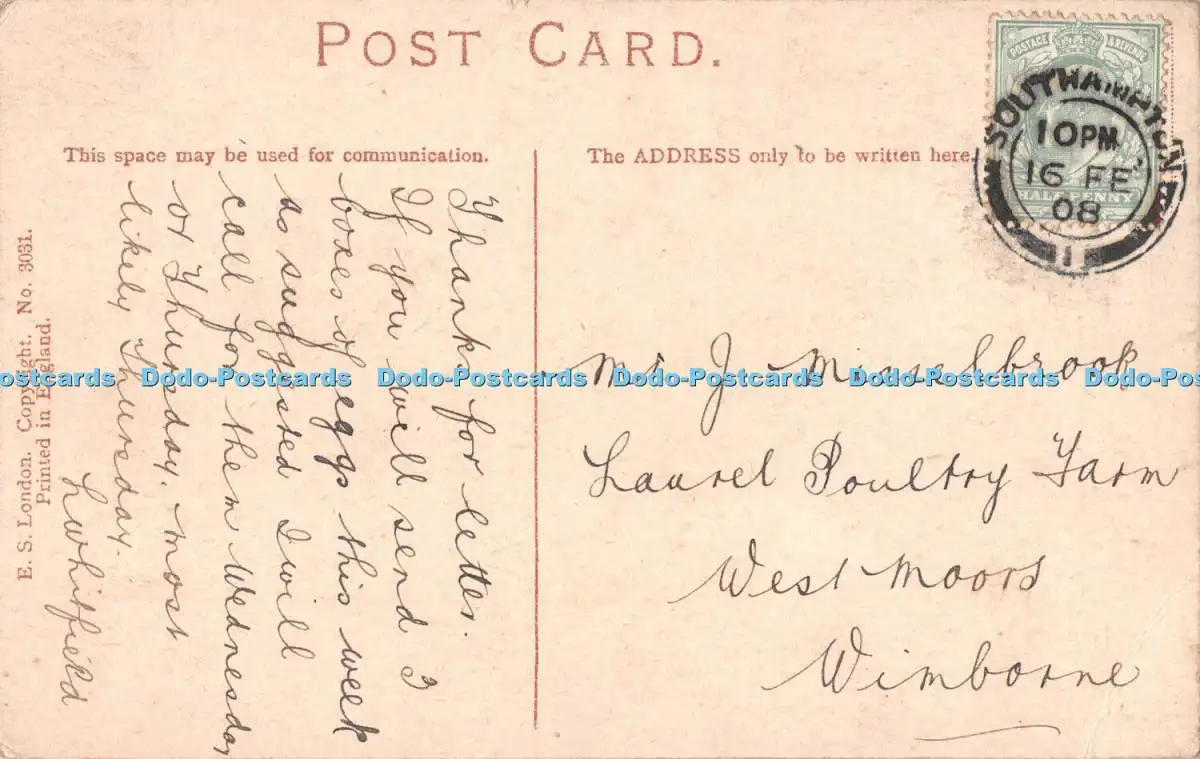 POST CARD.
This space may be used for communication.
The ADDRESS only to be written here.
POSTAGE & REVENUE
HALFPENNY
SOUTHAMPTON
10 PM
16 FE
08
1
Thanks for letter.
If you will send 3
boxes of eggs this week
as suggested I will
call for them Wednesday
or Thursday. most
likely Thursday.
L Whitfield
Mr J
Laurel Poultry Farm
West Moors
Wimborne
E. S. London. Copyright. No. 3031.
Printed in England.
Postcards Dodo-Postcards Dodo-Postcards Dodo-Postcards Dodo-Postcards Dodo-Postcards